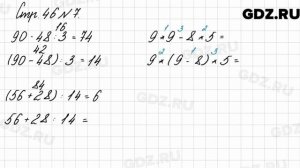 GDZ.RU
Стр. 46 N 7
16
90 - 48 : 3 = 74
42
(90 - 48) : 3 = 14
84
(56 + 28) : 14 = 6
56 + 28 : 14 =
1 3 2
9 × 9 - 8 × 5 =
2 1 3
9 × (9 - 8) × 5 =
GDZ.RU